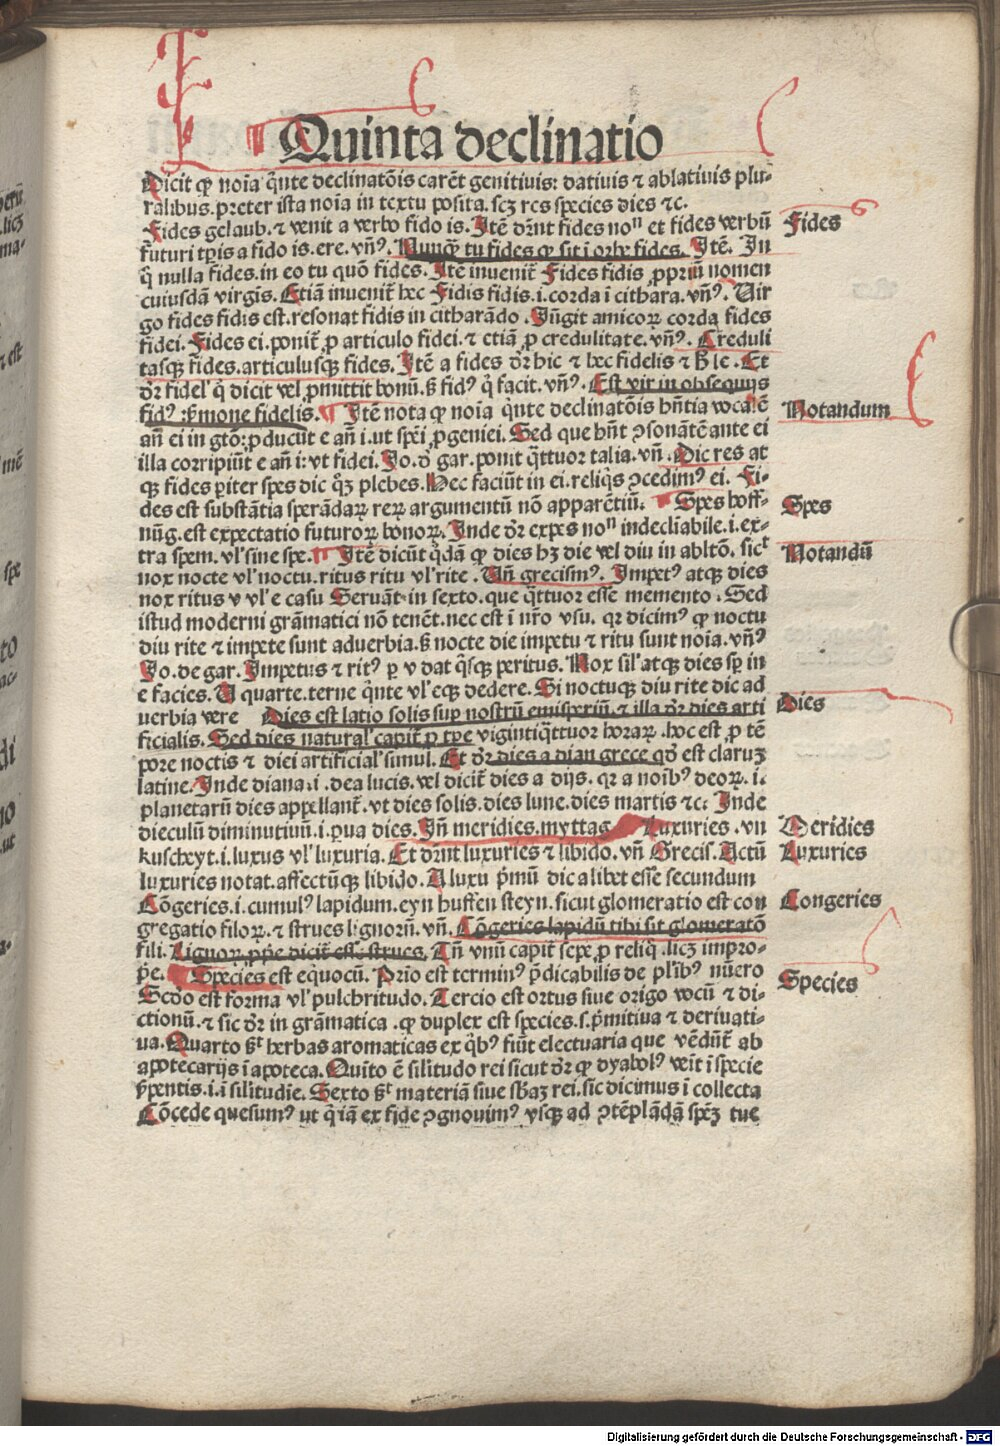 Quinta declinatio
Dicit ꝙ noīa q̄nte declinatōis carēt genitiuis: datiuis ⁊ ablatiuis plu-
ralibus. preter ista noīa in textu posita. scꝫ res species dies ⁊c.
Fides gelaub. ⁊ venit a verbo fido is. Itē dr̄nt fides noⁿ et fides verbū
futuri tp̄is a fido is. ere. vn̄ꝰ. Nunqꝫ tu fides ꝙ sit ī orbe fides. Itē. In
q̄ nulla fides. in eo tu quō fides. Itē inuenit̄ Fides fidis ꝓpriū nomen
cuiusdā virgīs. Etiā inuenit̄ hec Fidis fidis .i. corda ī cithara. vn̄ꝰ. Uir
go fides fidis est. resonat fidis in citharādo. Iūgit amicoꝝ corda fides
fidei. Fides ei. ponit̄ ꝓ articulo fidei. ⁊ etiā ꝓ credulitate. vn̄ꝰ. Creduli
tasqꝫ fides. articulusqꝫ fides. Itē a fides dr̄ hic ⁊ hec fidelis ⁊ h̄ le. Et
dr̄ fidel' q̄ dicit vel ꝓmittit bonū. ꝫ fidꝰ q̄ facit. vn̄ꝰ. Est vir in obsequijs
fidꝰ sermone fidelis. Itē nota ꝙ noīa q̄nte declinatōis hn̄tia vocalē
an̄ ei in gtō: ꝓducūt e an̄ i. ut spēi ꝓgeniei. Sed que hn̄t ꝯsonātē ante ei
illa corripiūt e an̄ i: vt fidei. Jo. d' gar. ponit q̄ttuor talia. vn̄. Dic res at
qꝫ fides pariter spes dic qꝫ plebes. Hec faciūt in ei. reliq̄s ꝯcedimꝰ ei. Fi-
des est substātia sperādaꝝ reꝝ argumentū nō apparētiū. Spes hoff-
nūg. est expectatio futuroꝝ bonoꝝ. Inde dr̄ expes noⁿ indecliabile. i. ex-
tra spem. vl' sine spe. Itē dicūt q̄dā ꝙ dies hꝫ die vel diu in abltō. sicᵗ
nox nocte vl' noctu. ritus ritu vl' rite. Un̄ grecismꝰ. Impetꝰ atqꝫ dies
nox ritus v vl' e casu Seruāt in sexto. que q̄ttuor esse memento. Sed
istud moderni grāmatici nō tenēt. nec est ī nr̄o vsu. qr dicimꝰ ꝙ noctu
diu rite ⁊ impete sunt aduerbia. ꝫ nocte die impetu ⁊ ritu sunt noīa. vn̄ꝰ
Jo. de gar. Impetus ⁊ ritꝰ per v dat q̄sqꝫ peritus. Nox sil' atqꝫ dies sꝑ in
e facies. U quarte. terne q̄nte vl' eqꝫ dedere. Si noctuqꝫ diu rite dic ad
uerbia vere Dies est latio solis suꝑ nostrū emisperiū. ⁊ illa dr̄ dies arti
ficialis. Sed dies natural' capit̄ ꝓ tꝑe vigintiq̄ttuor horaꝝ. hoc est ꝓ tē
pore noctis ⁊ diei artificial' simul. Et dr̄ dies a dian grece qd' est claruꝫ
latine. Inde diana .i. dea lucis. vel dicit̄ dies a dijs. qr a noībꝰ deoꝝ. i.
planetarū dies appellant̄. vt dies solis. dies lune. dies martis ⁊c. Inde
dieculū diminutiuū. i. parua dies. Jn̄ meridies. myttag. Luxuries. vn
kuscheyt. i. luxus vl' luxuria. Et dr̄nt luxuries ⁊ libido. vn̄ Grecis. Actū
luxuries notat. affectūqꝫ libido. A luxu p̄mū dic a libet esse secundum
Cōgeries. i. cumulꝰ lapidum. eyn huffen steyn. sicut glomeratio est con
gregatio filoꝝ. ⁊ strues lignorū. vn̄. Cōgeries lapidū tibi sit glomeratō
fili. Lignoꝝ ꝓp̄e dicit̄ esse strues. Tn̄ vnū capit̄ sepe ꝓ reliq̄. licꝫ impro-
p̄e. Species est equocū. Prīo est terminꝰ p̄dicabilis de pl'ibꝰ nūero
Sedo est forma vl' pulchritudo. Tercio est ortus siue origo vocū ⁊ di-
ctionū. ⁊ sic dr̄ in grāmatica. ꝙ duplex est species. s. p̄mitiua ⁊ deriuati-
ua. Quarto sꝫt herbas aromaticas ex q̄bꝰ fiūt electuaria que vēdūt̄ ab
apotecarijs ī apoteca. Quīto ē silitudo rei sicut dr̄ ꝙ dyabolꝰ veīt ī specie
s̄pentis. i. ī silitudīe. Sexto sꝫt materiā siue sbaꝫ rei. sic dicimus ī collecta
Cōcede quesumꝰ ut q̄ iā ex fide ꝯgnouimꝰ vsqꝫ ad ꝯtēplādā spēꝫ tue
Fides
Notandum
Spes
Notandū
Dies
Meridies
Luxuries
Congeries
Species
Digitalisierung gefördert durch die Deutsche Forschungsgemeinschaft - DFG